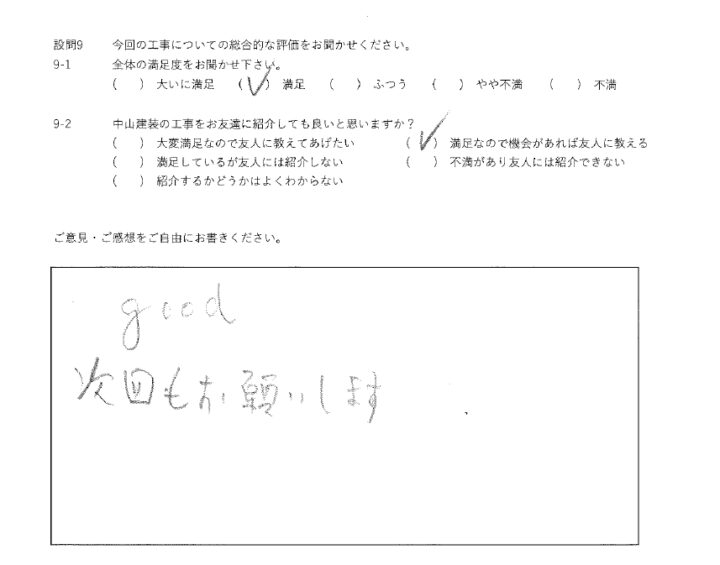 設問9 今回の工事についての総合的な評価をお聞かせください。
9-1 全体の満足度をお聞かせ下さい。
( ) 大いに満足 (✓) 満足 ( ) ふつう ( ) やや不満 ( ) 不満
9-2 中山建装の工事をお友達に紹介しても良いと思いますか?
( ) 大変満足なので友人に教えてあげたい (✓) 満足なので機会があれば友人に教える
( ) 満足しているが友人には紹介しない ( ) 不満があり友人には紹介できない
( ) 紹介するかどうかはよくわからない
ご意見・ご感想をご自由にお書きください。
good
次回もお願いします